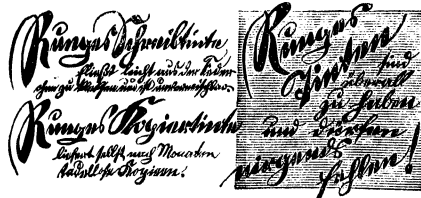 Runges Schreibtinte
fließt leicht aus der Feder
ohne zu klecksen und ist unverwischbar.
Runges Kopiertinte
liefert selbst nach Monaten
tadellose Kopieen.
Runges
Tinten
sind
überall
zu haben
und dürfen
nirgends
fehlen!